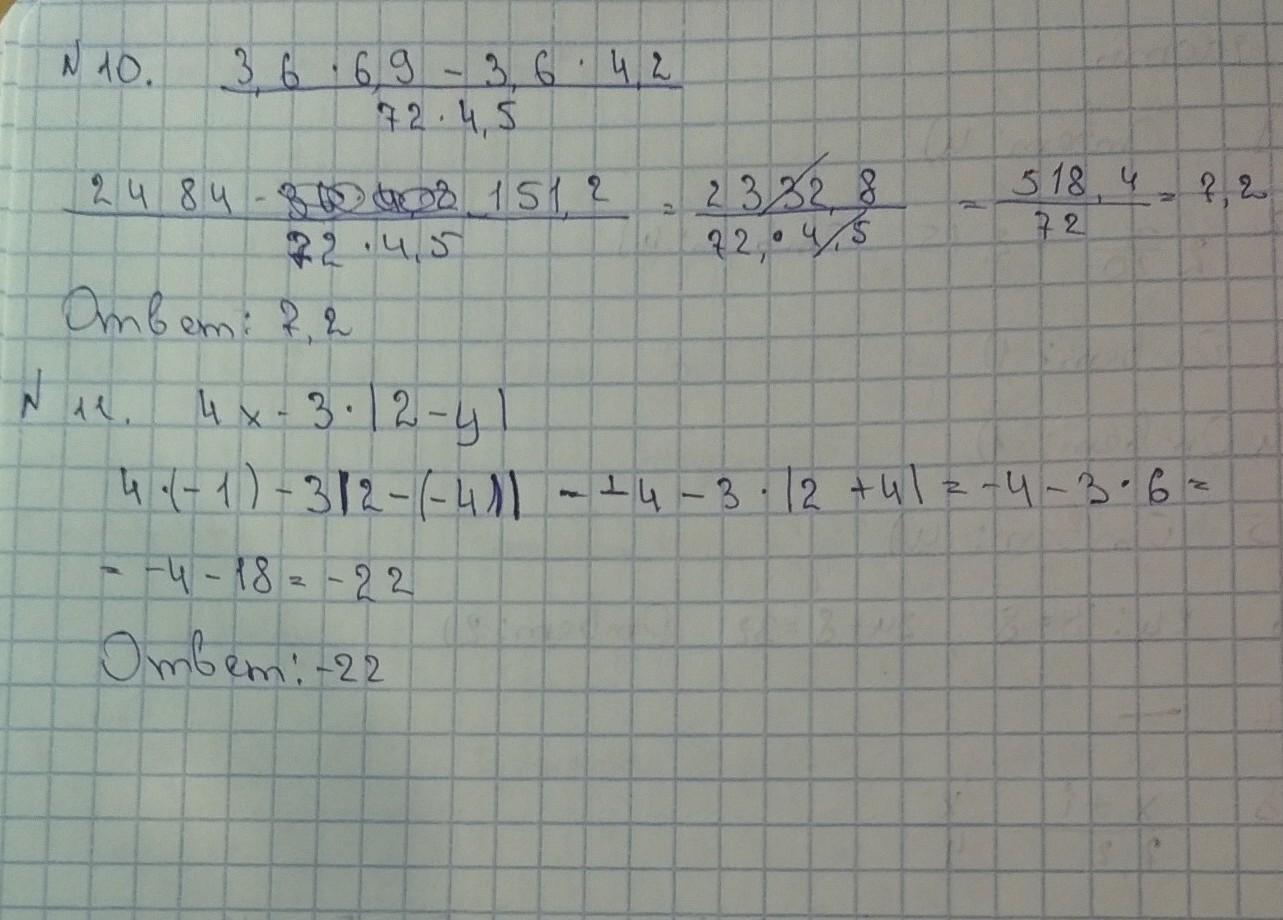 N 10. 3,6 · 6,9 - 3,6 · 4,2
72 · 4,5
2484 - 151,2 = 2332,8 = 518,4 = 7,2
72 · 4,5 72, · 4,5 72
Ответ: 7,2
N 11. 4x - 3 · |2 - y|
4 · (-1) - 3|2 - (-4)| - -4 - 3 · |2 + 4| = -4 - 3 · 6 =
= -4 - 18 = -22
Ответ: -22